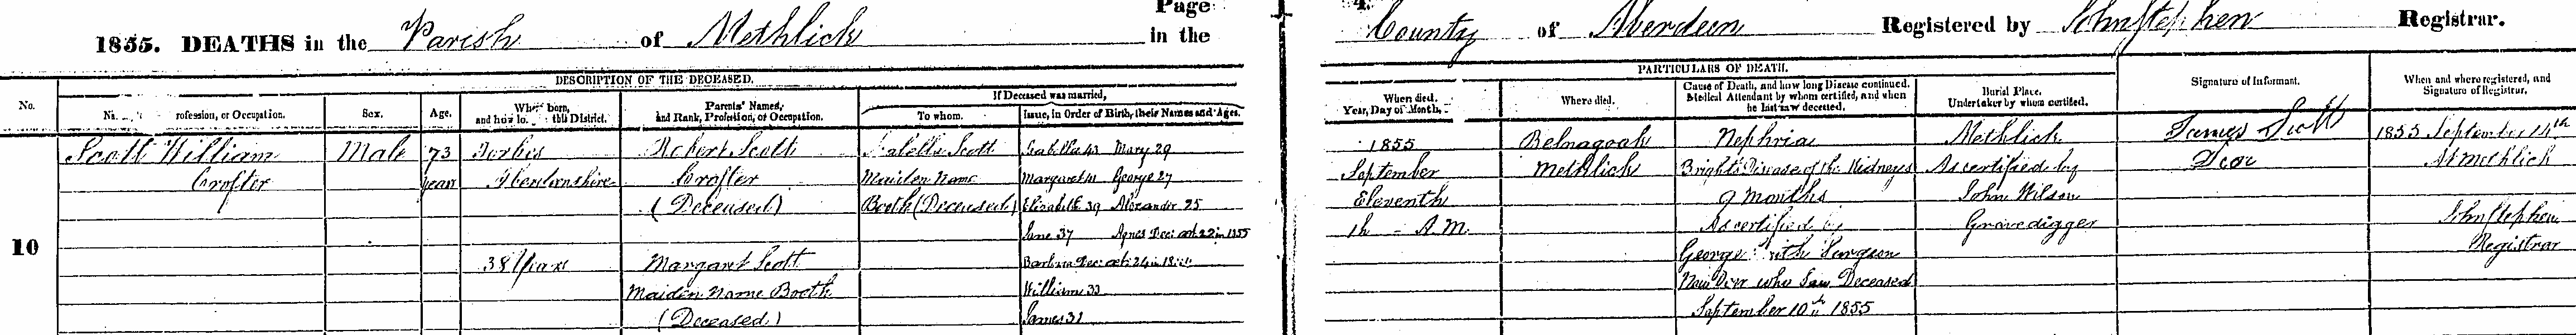 Page
4.
1855. DEATHS in the Parish of Methlick in the
County of Aberdeen Registered by John Stephen Registrar.
DESCRIPTION OF THE DECEASED.
PARTICULARS OF DEATH.
No.
rofession, or Occupation.
Sex.
Age.
born,
and how this District.
Parents' Names,
and Rank, Profession, or Occupation.
If Deceased was married,
To whom.
Issue, in Order of Birth, their Names and Ages.
When died.
Year, Day of Month,
Where died.
Cause of Death, and how long Disease continued.
Medical Attendant by whom certified, and when
he last saw deceased.
Burial Place.
Undertaker by whom certified.
Signature of Informant.
When and where registered, and
Signature of Registrar.
10
Scott William
Crofter
Male
73
years
Forbes
Aberdeenshire
38 Years
Robert Scott
Crofter
(Deceased)
Margaret Scott
Maiden Name Booth
(Deceased)
Isabella Scott
Maiden Name
Booth (Deceased)
Isabella 43 Mary 29
Margaret 41 George 27
Elizabeth 39 Alexander 25
Jane 37 Agnes Dec: at 22 in 1855
Barbara Dec: at 24 in
William 33
James 31
1855
September
Eleventh
1h - A.M.
Belnagoak
Methlick
Nephria
Bright's Disease of the Kidneys
9 months
As certified by
George Surgeon
New Deer who saw Deceased
September 10th 1855
Methlick
As certified by
John Wilson
Gravedigger
James Scott
1855 September 14th
At Methlick
John Stephen
Registrar